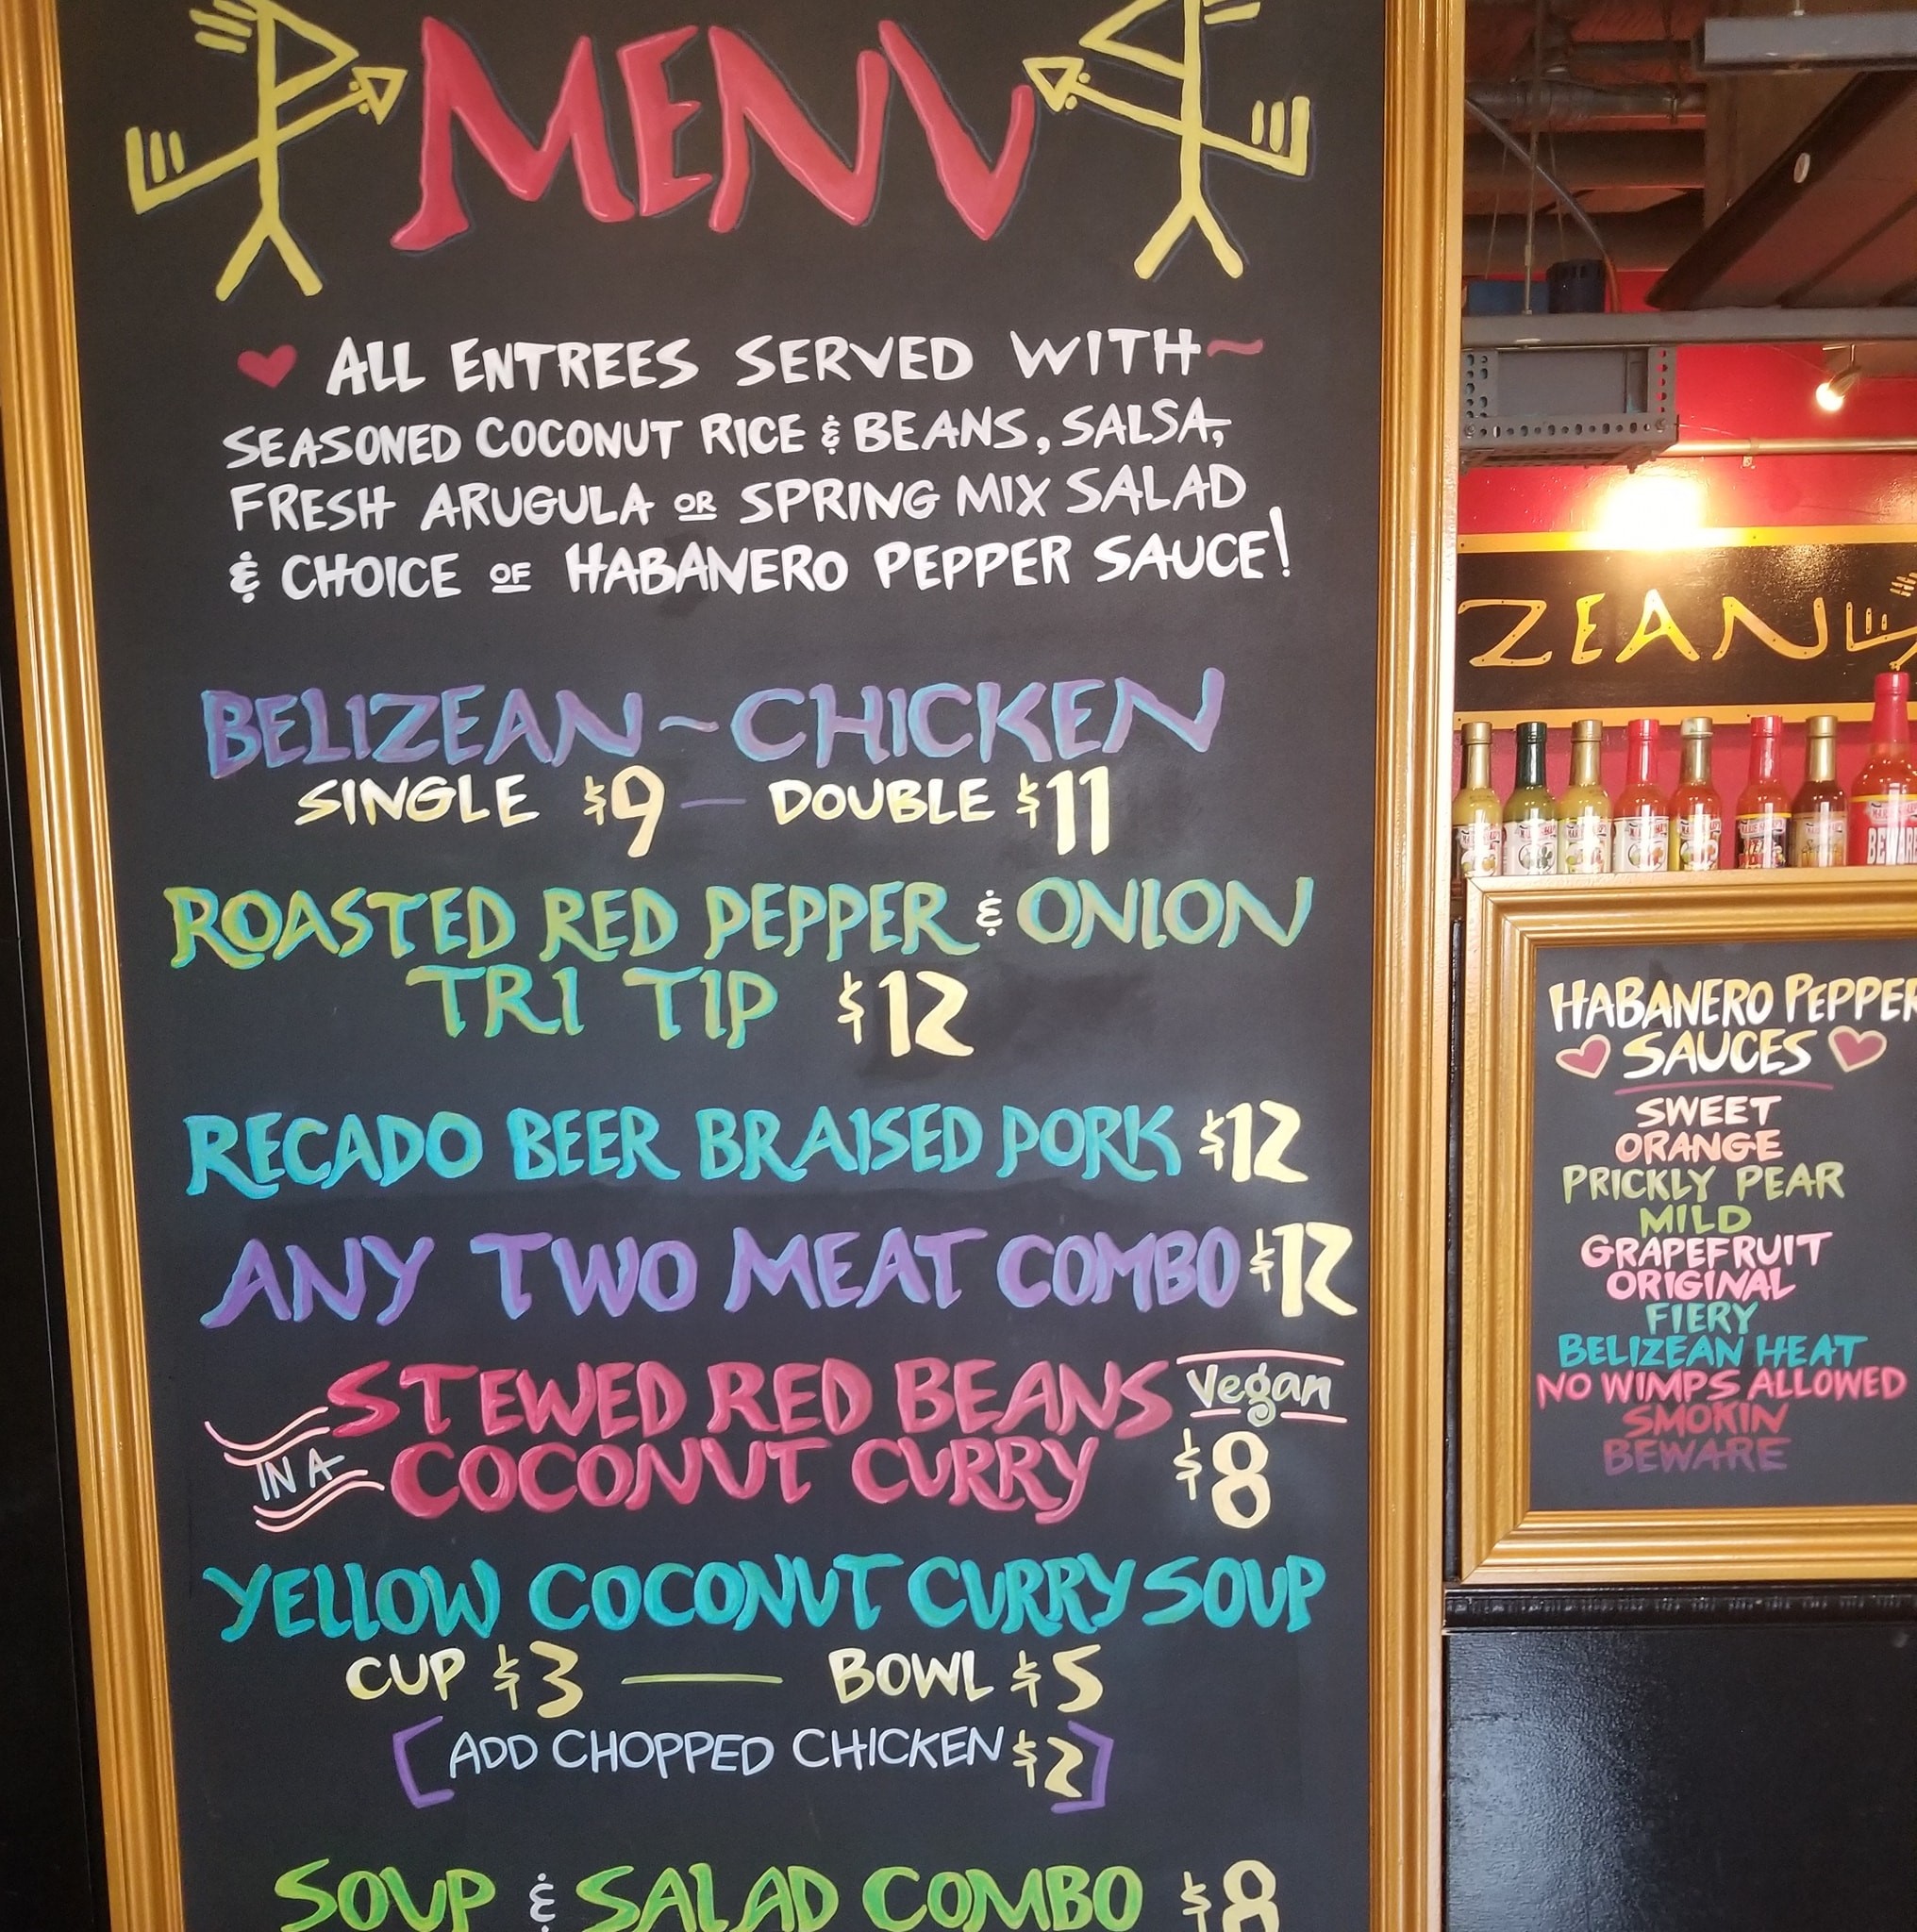 MENU
ALL ENTREES SERVED WITH~
SEASONED COCONUT RICE & BEANS, SALSA,
FRESH ARUGULA OR SPRING MIX SALAD
& CHOICE OF HABANERO PEPPER SAUCE!
BELIZEAN~CHICKEN
SINGLE $9 — DOUBLE $11
ROASTED RED PEPPER & ONION
TRI TIP $12
RECADO BEER BRAISED PORK $12
ANY TWO MEAT COMBO $12
STEWED RED BEANS Vegan
IN A COCONUT CURRY $8
YELLOW COCONUT CURRY SOUP
CUP $3 — BOWL $5
[ADD CHOPPED CHICKEN $2]
SOUP & SALAD COMBO $8
ZEAN
BEWARE
HABANERO PEPPER
SAUCES
SWEET
ORANGE
PRICKLY PEAR
MILD
GRAPEFRUIT
ORIGINAL
FIERY
BELIZEAN HEAT
NO WIMPS ALLOWED
SMOKIN
BEWARE